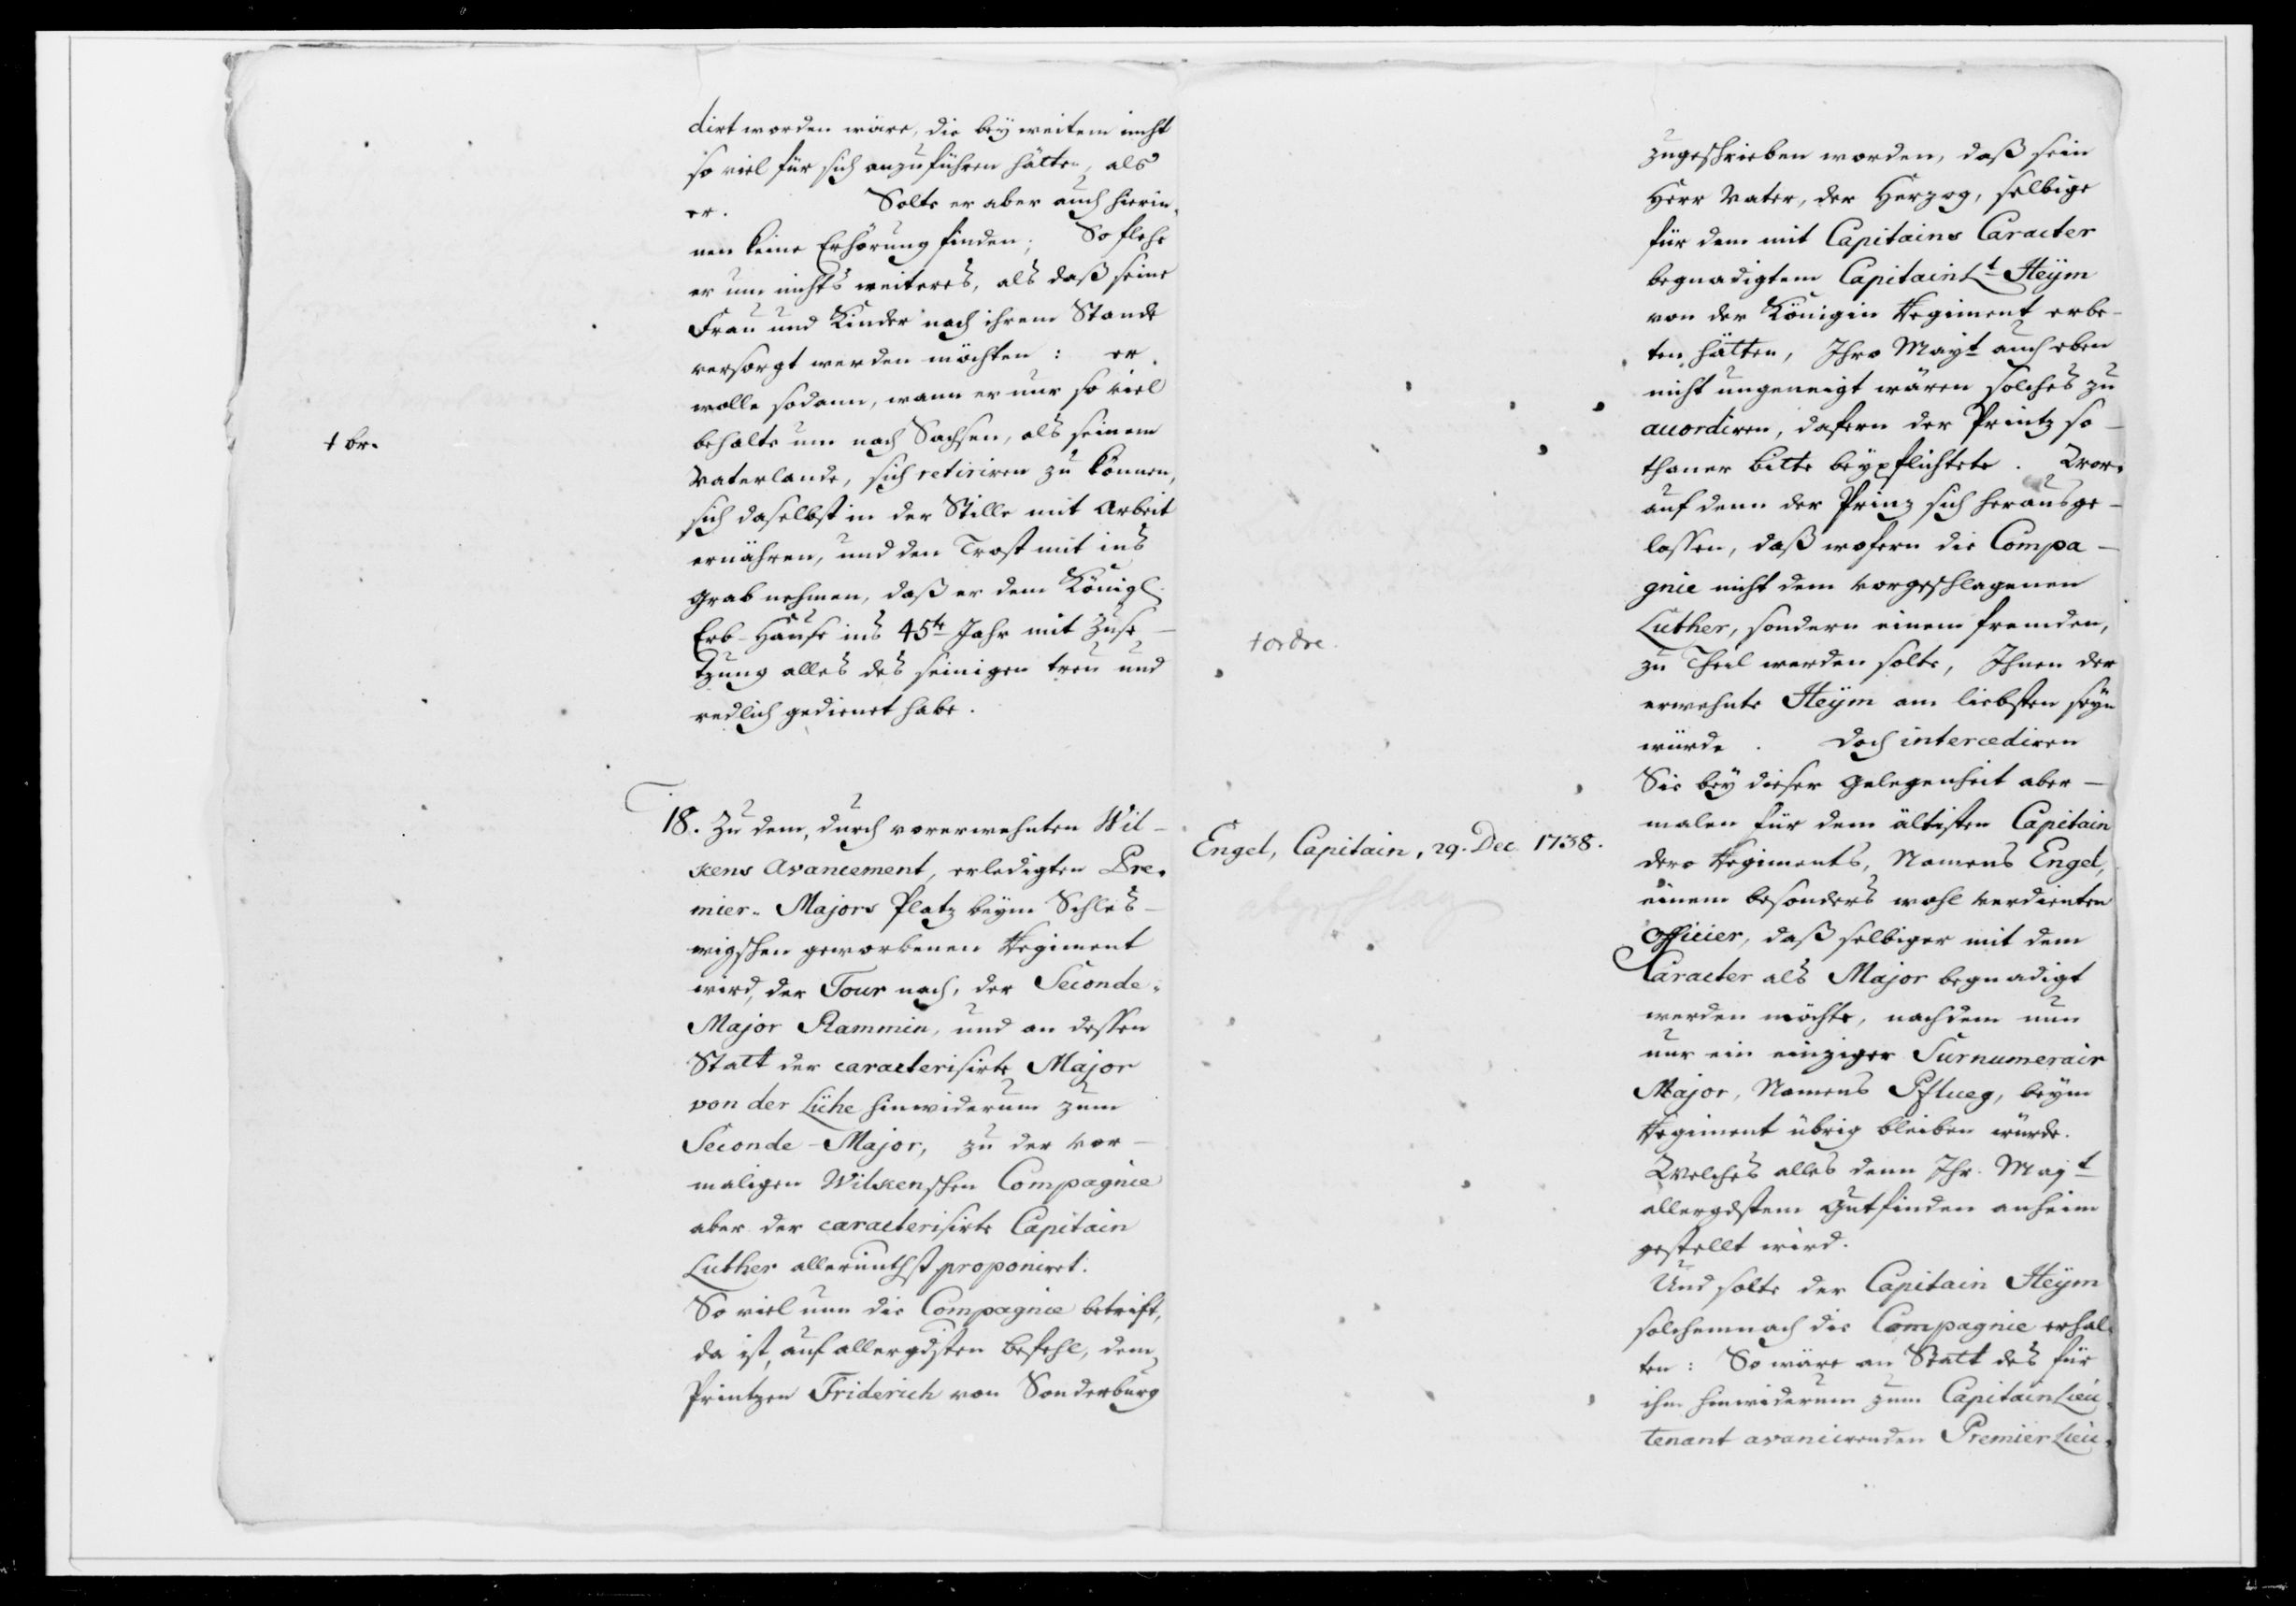 dirt worden wäre, die bey weitem nicht
so viel für sich anzuführen hätten, als
er. Solte er aber auch hierin-
nen keine Erhörung finden; So flehe
er um nichts weiteres, als daß seine
Frau und Kinder nach ihrem Stande
versorgt werden möchten: er
wolle sodann, wann er nur so viel
behalte um nach Sachsen, als seinem
Vaterlande, sich retiriren zu können,
sich daselbst in der Stille mit Arbeit
ernähren, und den Trost mit ins
Grab nehmen, daß er dem Königl.
Erb-Hause ins 45te Jahr mit Zuse-
tzung alles des seinigen treu und
redlich gedienet habe.
† br.
18. Zu dem, durch vorerwehnten Wil-
ckens Avancement, erledigten Pre-
mier-Majors Platz beym Schles-
wigschen geworbenen Regiment
wird, der Tour nach, der Seconde-
Major Rammin, und an dessen
Statt der caracterisirte Major
von der Lühe hinwiderum zum
Seconde-Major, zu der vor-
maligen Wilckenschen Compagnie
aber der caracterisirte Capitain
Luther allerunthst proponiret.
So viel nun die Compagnie betrift,
da ist, auf allergdsten Befehl, dem
Printzen Friderich von Sonderburg
zugeschrieben worden, daß sein
Herr Vater, der Herzog, selbige
für dem mit Capitains Caracter
begnadigtem Capitain Lt Heÿm
von der Königin Regiment erbe-
ten hätten, Ihro Mayt auch eben
nicht ungeneigt wären solches zu
accordiren, dafern der Printz so-
thaner Bitte beypflichtete. Wor-
auf denn der Prinz sich herausge-
lassen, daß wofern die Compa-
gnie nicht dem vorgeschlagenen
Luther, sondern einem fremden,
zu Theil werden solte, Ihnen der
erwehnte Heÿm am liebsten seyn
würde. Doch intercediren
Sie bey dieser Gelegenheit aber-
malen für dem ältesten Capitain
dero Regiments, Namens Engel,
einem besonders wohl verdienten
Officier, daß selbiger mit dem
Caracter als Major begnadigt
werden möchte, nachdem nun
nur ein einziger Surnumerair
Major, Namens Pflueg, beym
Regiment übrig bleiben würde.
Welches alles denn Ihr. Mayt
allergdstem Gutfinden anheim
gestellt wird.
Und solte der Capitain Heÿm
solchemnach die Compagnie erhal-
ten: So wäre an Statt des für
ihm hinwiderum zum Capitain Lieu-
tenant avancirenden Premier Lieu-
† ordre.
Engel, Capitain, 29. Dec. 1738.
abgeschlag